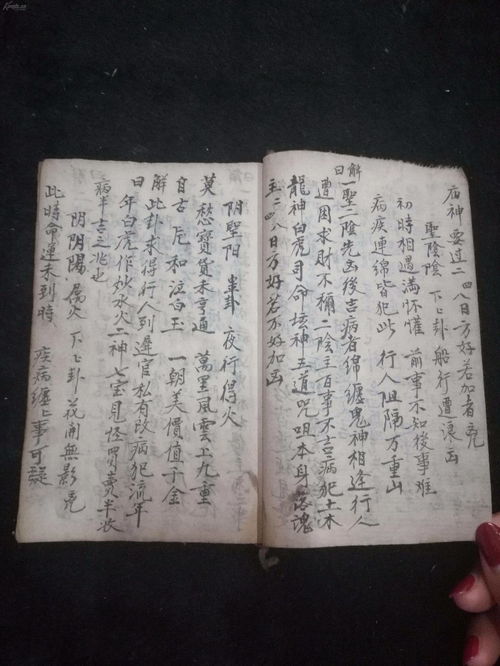 庙神要过二四八日方好若加者凶
聖陰陰 下下卦 船行遭浪凶
初時相遇滿怀懽 前事不知後事难
病疾連綿皆犯此 行人阻隔万重山
解曰 一聖二陰先凶後吉病者綿纏鬼神相逢行人
遭困求財不補二陰主百事不吉病犯土木
龍神白虎司命坛神五道咒咀本身落魂
主二四八日方好若不好加凶
阴聖阳 中卦 夜行得火
莫愁寳貨未亨通 萬里風雲上九重
自古卮和泣白玉 一朝美價值千金
解曰 此卦求得行人到遲官私有改病犯流年
年白虎作炒水火二神七宝見怪買賣半收
病半吉之兆也
阴阴陽 属火 下下卦 花開無影凶
此時命運未到時 疾病纏上事可疑